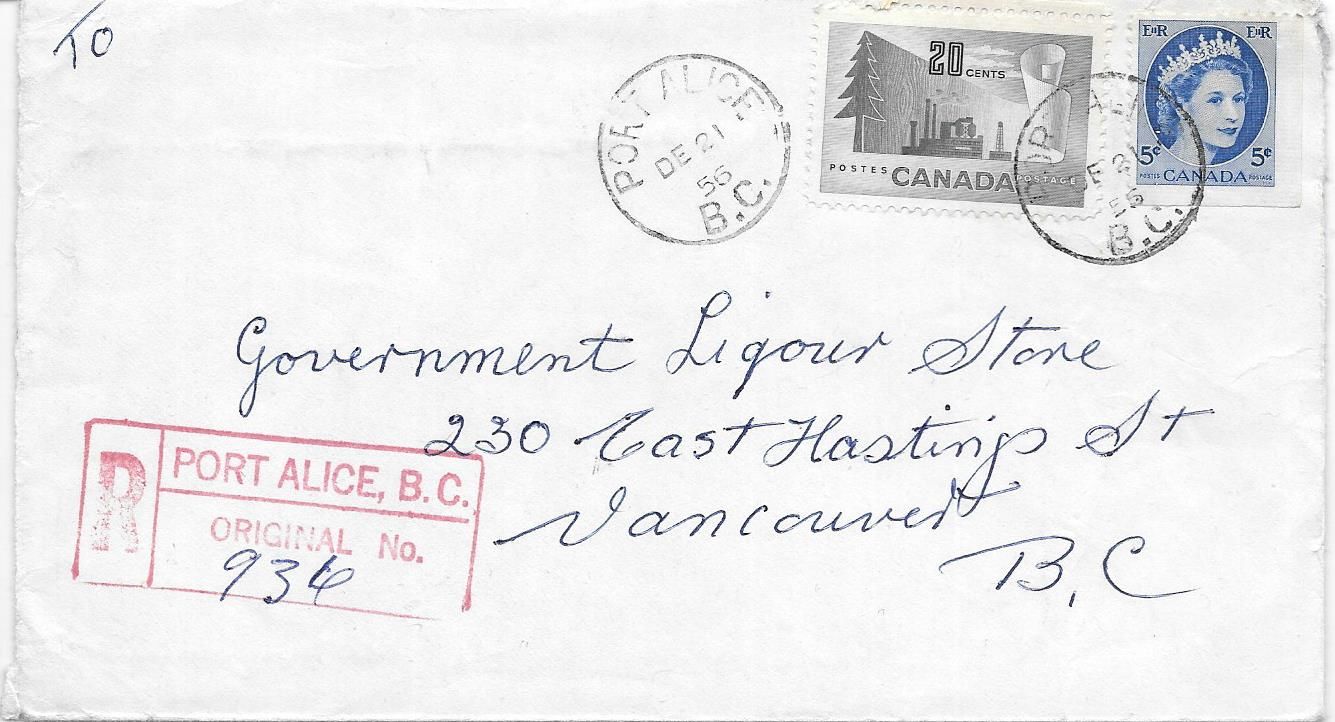 To
PORT ALICE
DE 21
56
B.C.
20 CENTS
POSTES CANADA POSTAGE
EIIR EIIR
5¢ 5¢
POSTES CANADA POSTAGE
PORT ALICE
DE 21
56
B.C.
Government Liqour Store
230 East Hastings St
Vancouver
B.C
R
PORT ALICE, B.C.
ORIGINAL No.
934